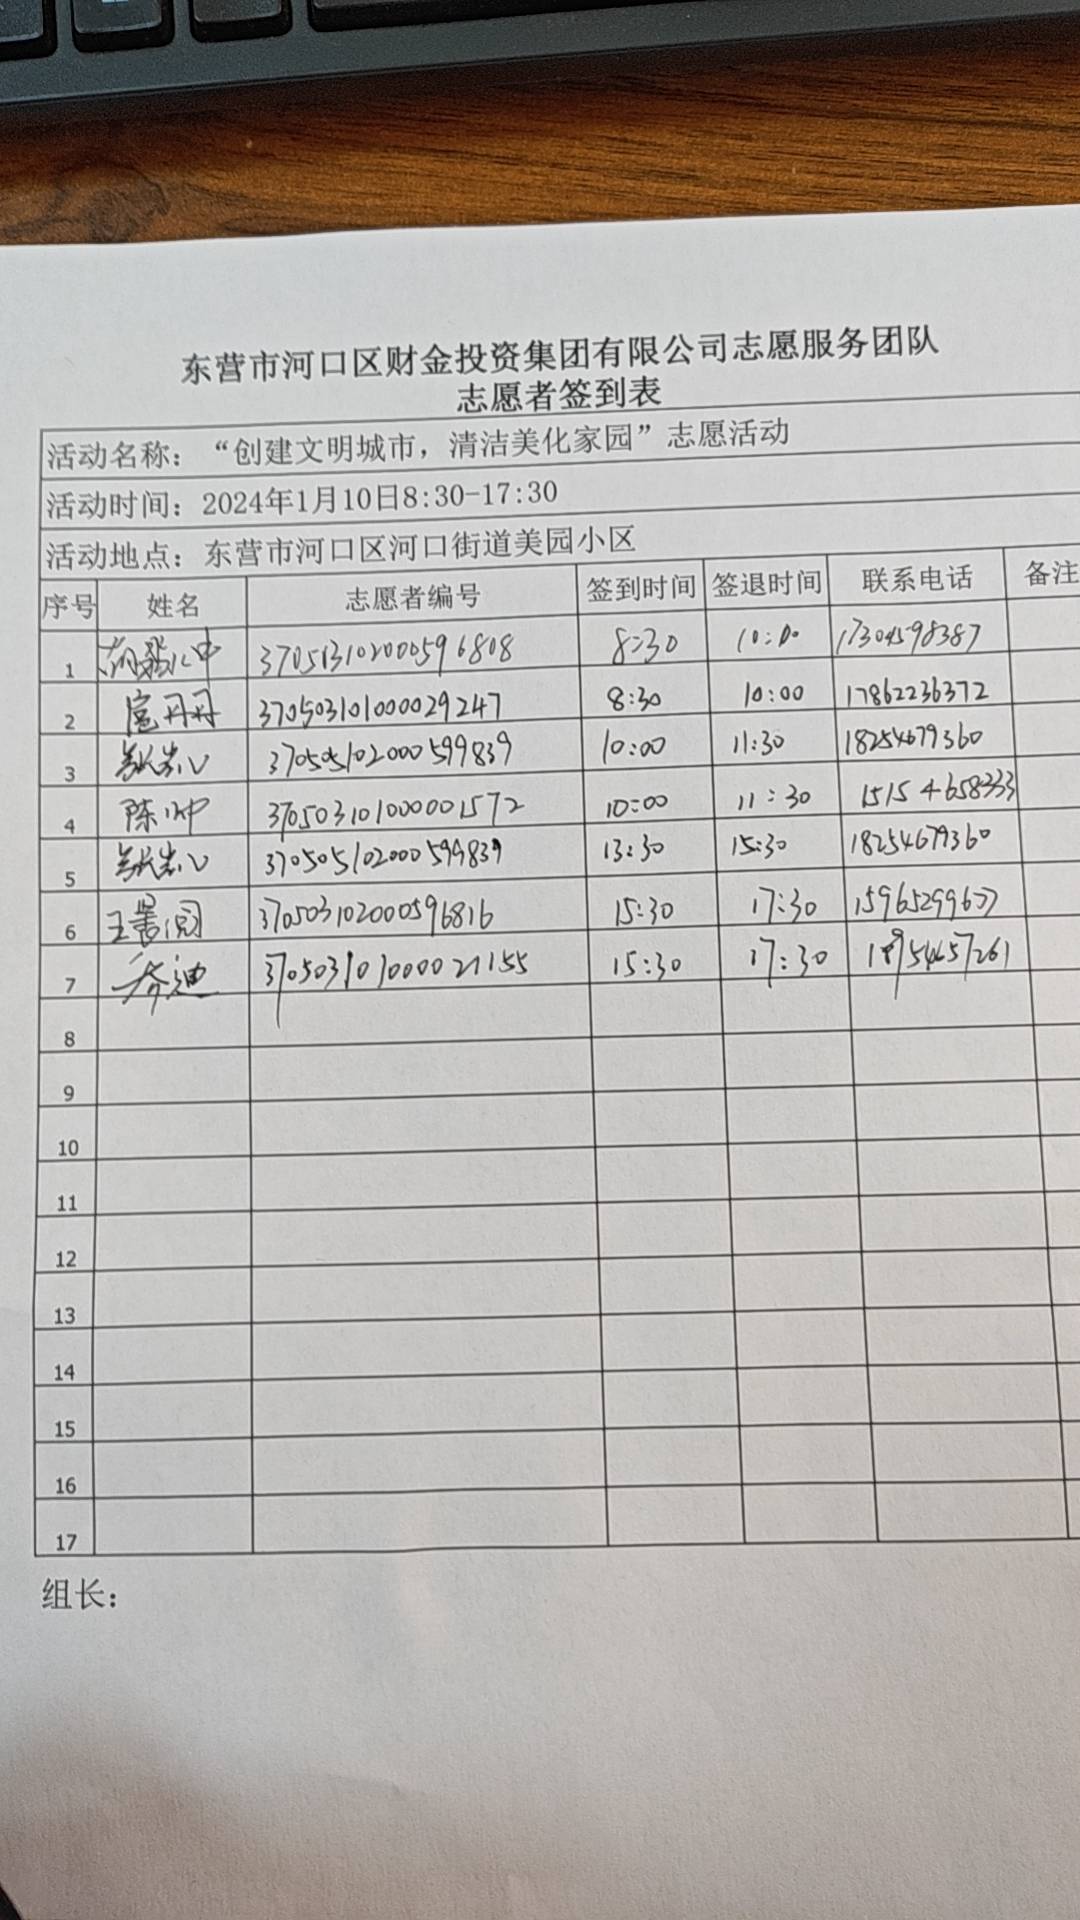 东营市河口区财金投资集团有限公司志愿服务团队
志愿者签到表
活动名称：“创建文明城市，清洁美化家园”志愿活动
活动时间：2024年1月10日8:30-17:30
活动地点：东营市河口区河口街道美园小区
序号 姓名 志愿者编号 签到时间 签退时间 联系电话 备注
1 8:30 10:00 17304598387
2 370503101000029247 8:30 10:00 17862236372
3 370505102000599839 10:00 11:30 18254679360
4 陈帅 370503101000001572 10:00 11:30 15154658333
5 370505102000599839 13:30 15:30 18254679360
6 370503102000596816 15:30 17:30
7 370503101000021155 15:30 17:30
8
9
10
11
12
13
14
15
16
17
组长：